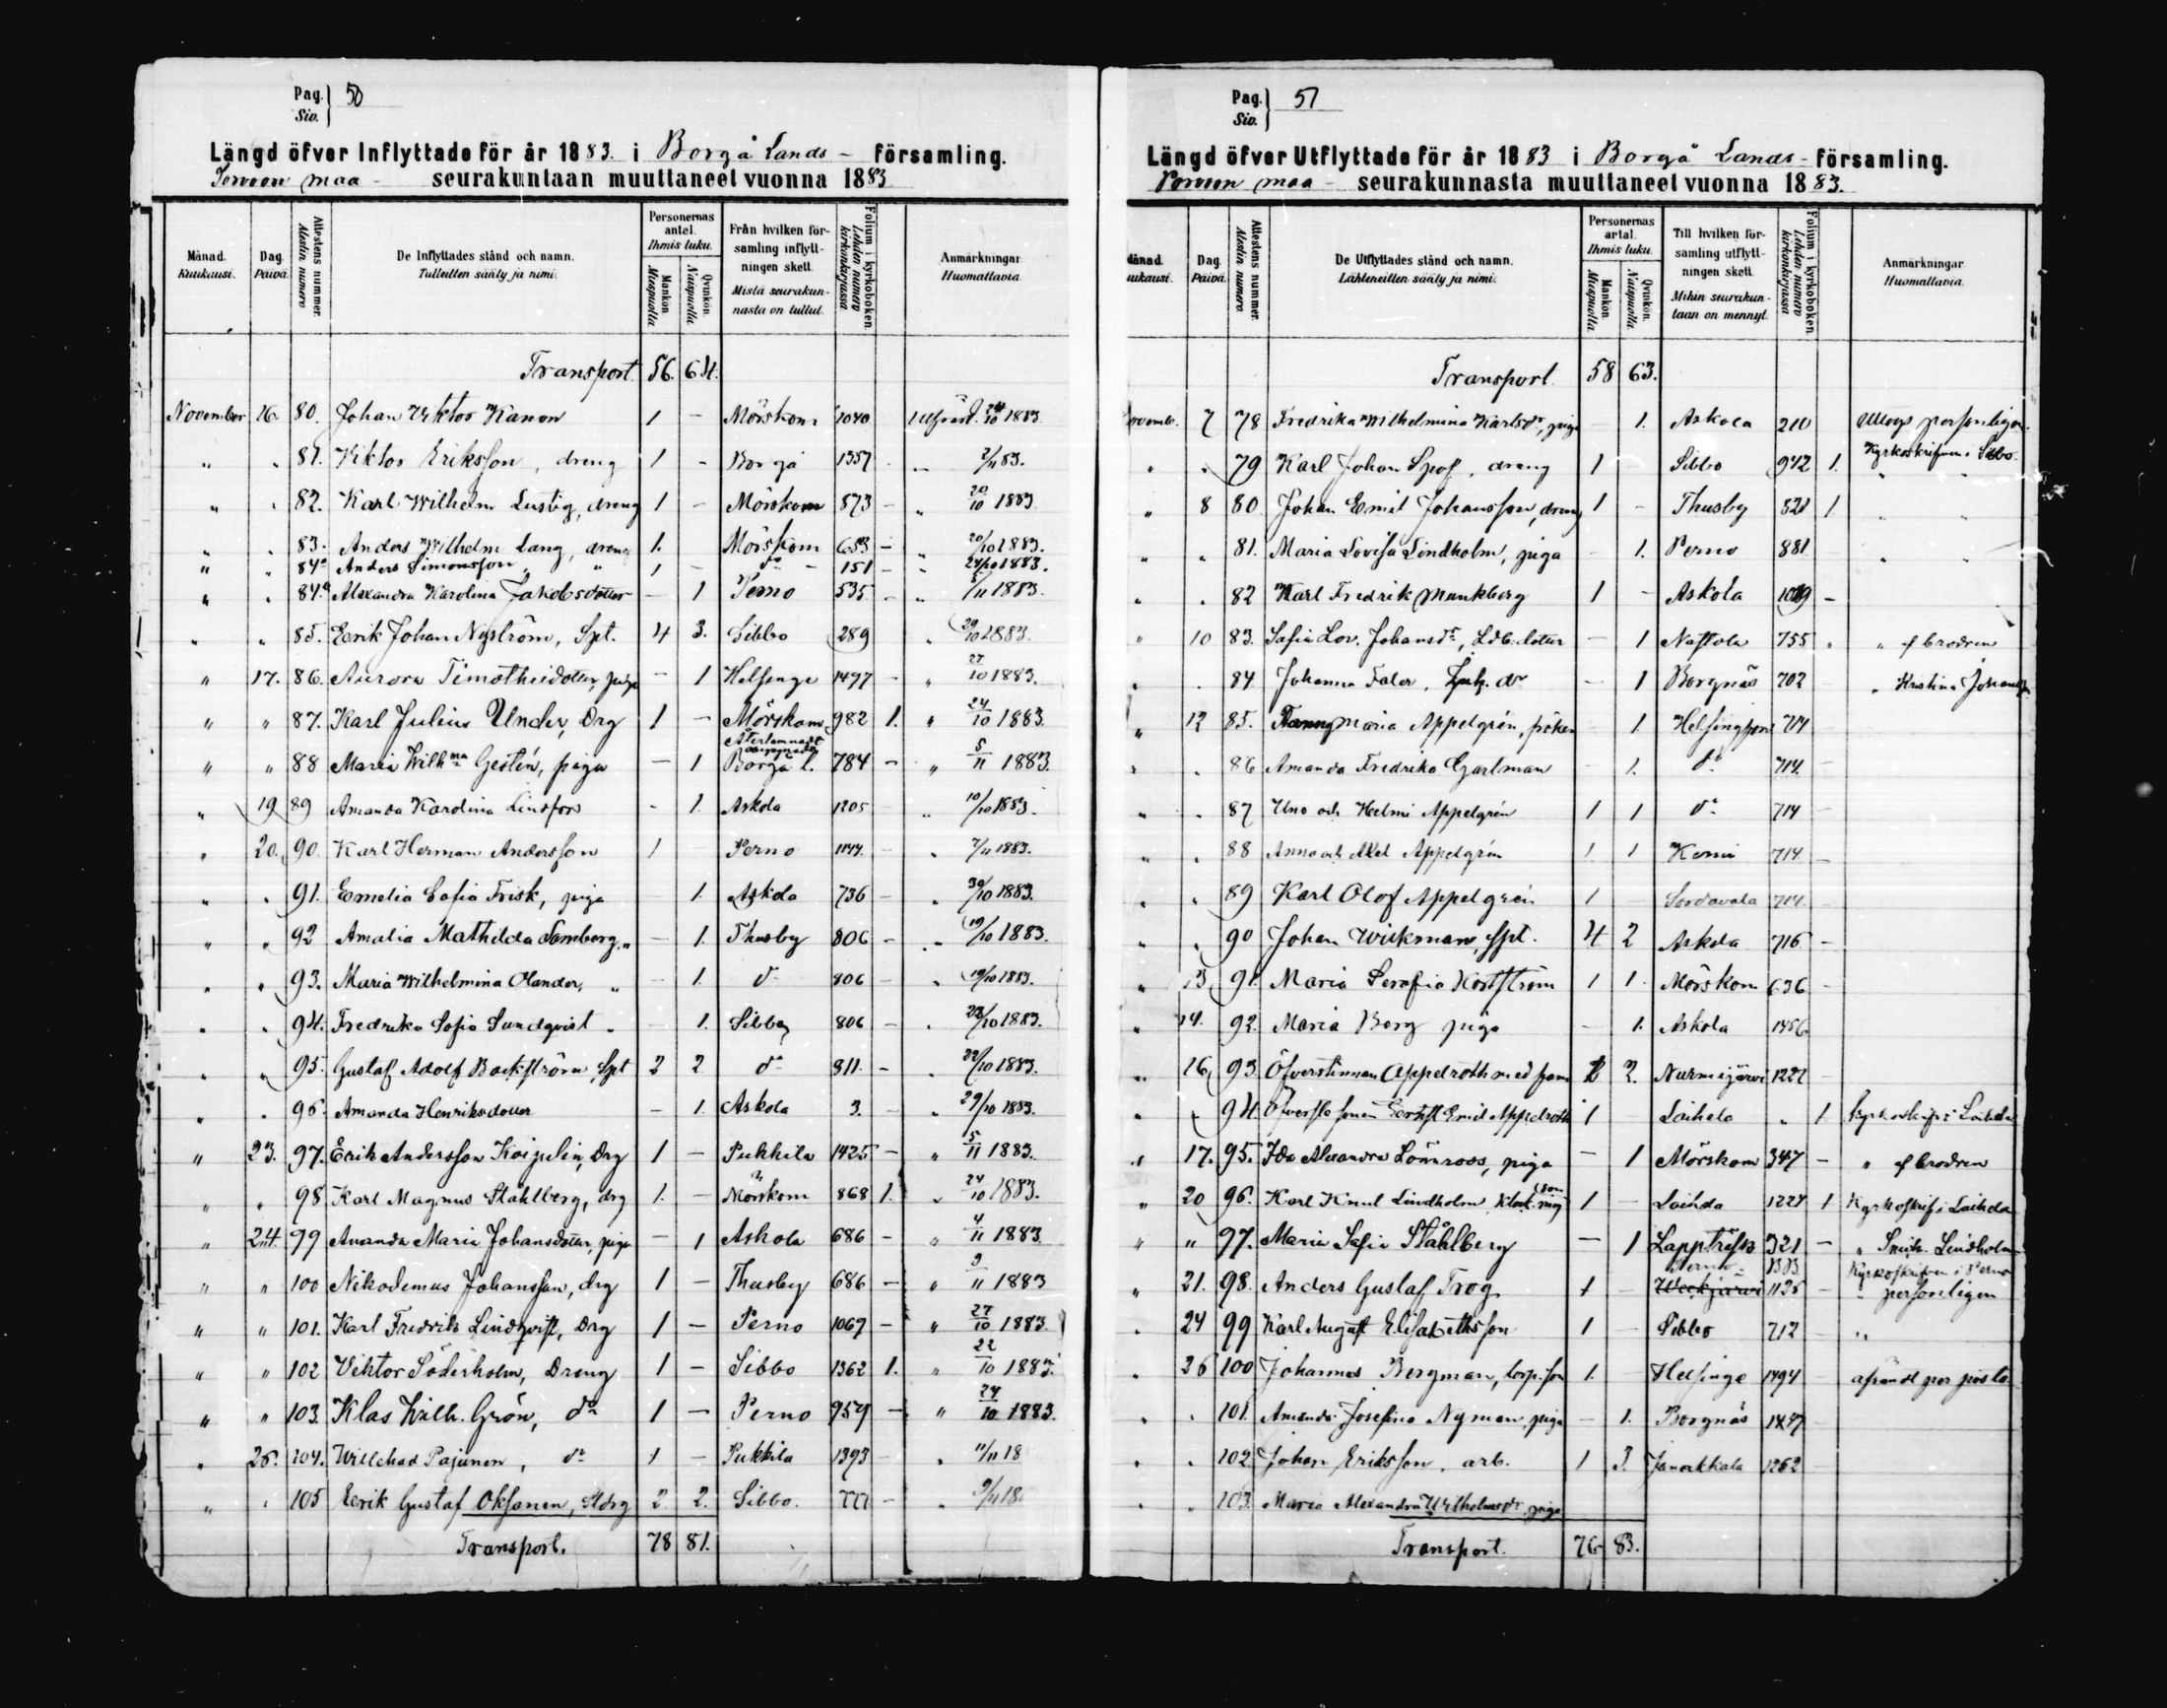 Pag. Siv. } 50
Längd öfver Inflyttade för år 1883. i Borgå Lands- församling.
maa - seurakuntaan muuttaneet vuonna 1883
Månad. Kuukausi. Dag. Päivä. Attestens nummer. Alestin numero De Inflyttades stånd och namn. Tulleitten sääty ja nimi. Personernas antal. Ihmis luku. Mankön. Miespuolia Qvinkön. Naispuolia Från hvilken församling inflyttningen skett. Mistä seurakunnasta on tullut. Folium i kyrkoboken. Lehden numero kirkonkirjassa Anmärkningar. Huomattavia.
Transport. 56. 64.
November 16. 80. Johan Viktor Kanon 1 - Mörskom 1040 24/10 1883
" " 81. Viktor Eriksson, dreng 1 - Borgå 1357 2/11 83.
" " 82. Karl Wilhelm Lustig, dreng 1 - Mörskom 873 - " 20/10 1883
" " 83. Anders Wilhelm Lang, dreng 1. Mörskom 653 - " 20/10 1883.
" " 84a Anders Simonsson " 1 - do - 151 - " 24/10 1883.
" " 84a Alexandra Karolina Jakobsdotter - 1 Perno 535 - " /11 1883.
" " 85. Eerik Johan Nyström, Spt. 4 3. Sibbo 289 " 29/10 1883.
" 17. 86. Aurora Timotheidotter, piga - 1 Helsinge 1497 - " 27/10 1883.
" " 87. Karl Julius Under, Drg 1 - Mörskom 982 1. " 24/10 1883.
" " 88 Maria Wilhma Gestén, piga - 1 Återlemnadt Borgå l. 784 - " 5/11 1883.
" 19 89 Amanda Karolina Lindfors - 1. Askola 1205 " 10/10 1883.
" 20. 90. Karl Herman Andersson 1 Perno 1144. - " 7/11 1883.
" " 91. Emelia Sofia Frisk, piga - 1. Askola 736 - " 30/10 1883.
" " 92 Amalia Mathilda Tamberg, " - 1. Thusby 806 - " 19/10 1883.
" " 93. Maria Wilhelmina Olander, " - 1. do 806 - " 19/10 1883.
" " 94. Fredrika Sofia Sundqvist " - 1. Sibbo 806 - " 23/10 1883.
" " 95. Gustaf Adolf Backström, Spt 2 2 do 811. - " 22/10 1883.
" " 96. Amanda Henriksdotter - 1. Askola 3. - " 29/10 1883.
" 23. 97. Erik Andersson Koipelin, Drg 1 - Pukkila 1425 - " 5/11 1883.
" " 98 Karl Magnus Ståhlberg, drg 1. - Mörskom 868 1. " 24/10 1883.
" 24. 99 Amanda Maria Johansdotter, piga - 1 Askola 686 - " 4/11 1883.
" " 100 Nikodemus Johansson, drg 1 - Thusby 686 - " 9/11 1883
" " 101. Karl Fredrik Lindqvist, Drg 1 - Perno 1067 - " 27/10 1883.
" " 102 Viktor Söderholm, Dreng 1 - Sibbo 1362 1. " 22/10 1883.
" " 103. Klas Wilh. Grön, do 1 - Perno 959 - " 24/10 1883.
" 26. 104. Willehad Pajunen, do 1 - Pukkila 1393 - " 11/11 18
" " 105 Eerik Gustaf Oksanen, Stdrg 2 2. Sibbo. 777 - " 9/11 18
Transport. 78 81.
Pag. Siv. } 51
Längd öfver Utflyttade för år 1883 i Borgå Lands- församling.
maa - seurakunnasta muuttaneet vuonna 1883.
Månad. Kuukausi. Dag. Päivä. Attestens nummer. Alestin numero De Utflyttades stånd och namn. Lähteneitten sääty ja nimi. Personernas artal. Ihmis luku. Mankön. Miespuolia Qvinkön. Naispuolia Till hvilken församling utflyttningen skett. Mihin seurakuntaan on mennyt. Folium i kyrkoboken. Lehden numero kirkonkirjassa Anmärkningar. Huomattavia.
Transport. 58 63.
Novemb. 7 78 Fredrika Wilhelmina Karlsdr, piga 1. Askola 210 personligen.
" " 79 Karl Johan Spof, dreng 1 - Sibbo 942 1. Kyrkoskrifven i Sibbo.
" 8 80 Johan Emil Johansson, dreng 1 - Thusby 321 1. " "
" " 81. Maria Lovisa Lindholm, piga - 1. Perno 881 " "
" " 82 Karl Fredrik Munkberg 1 - Askola 1019 -
" 10 83. Safia Lov. Johansdr, Ldb. dotter - 1 Nastola 755 " " af brodren
" " 84. Johanna Faler, dr - 1 Borgnäs 702 " Kristina
" 12 85. Fanny Maria Appelgrén, fröken 1. Helsingfors 714
" " 86 Amanda Fredrika Garlman - 1. do 714. -
" " 87 Uno och Helmi Appelgrén 1 1 do 714 -
" " 88 Anna och Axel Appelgrén 1 1 Kemi 714. -
" " 89 Karl Olof Appelgrén 1 - Sordavala 714.
" " 90 Johan Wickman, Spt. 4 2 Askola 716 -
" 13 91. Maria Serafia Kortström 1 1 Mörskom 636 -
" 14. 92. Maria Borg piga - 1. Askola 1456
" 16, 93. Öfverstinnan Appelroth med fam 2 2. Nurmijärvi 1222 -
" " 94. Emil Appelroth 1 - Laihela " 1
" 17. 95. Ida Alexandra Lönnroos, piga - 1 Mörskom 347 - " af brodren
" 20 96. Karl Knut Lindholm, 1 - Laihela 1224 1 Kyrkoskrif i Laihela
" " 97. Maria Safia Ståhlberg - 1 Lappträsk 321 - " Smith. Lindholm
" 21. 98. Anders Gustaf Trog 1 - Perno 1136 - Kyrkoskrifven i Perno personligen
" 24 99 Karl August Elisabethsson 1 - Sibbo 712 "
" 26 100 Johannes Bergman, torp. son 1. Helsinge 1494 afsändt per posto
" " 101. Amanda Josefina Nyman, piga - 1. Borgnäs
" " 102 Johan Eriksson, arb. 1 3. Janakkala 1262
" " 103. Maria Alexandra Wilhelmsdr. piga
Transport. 76 83.